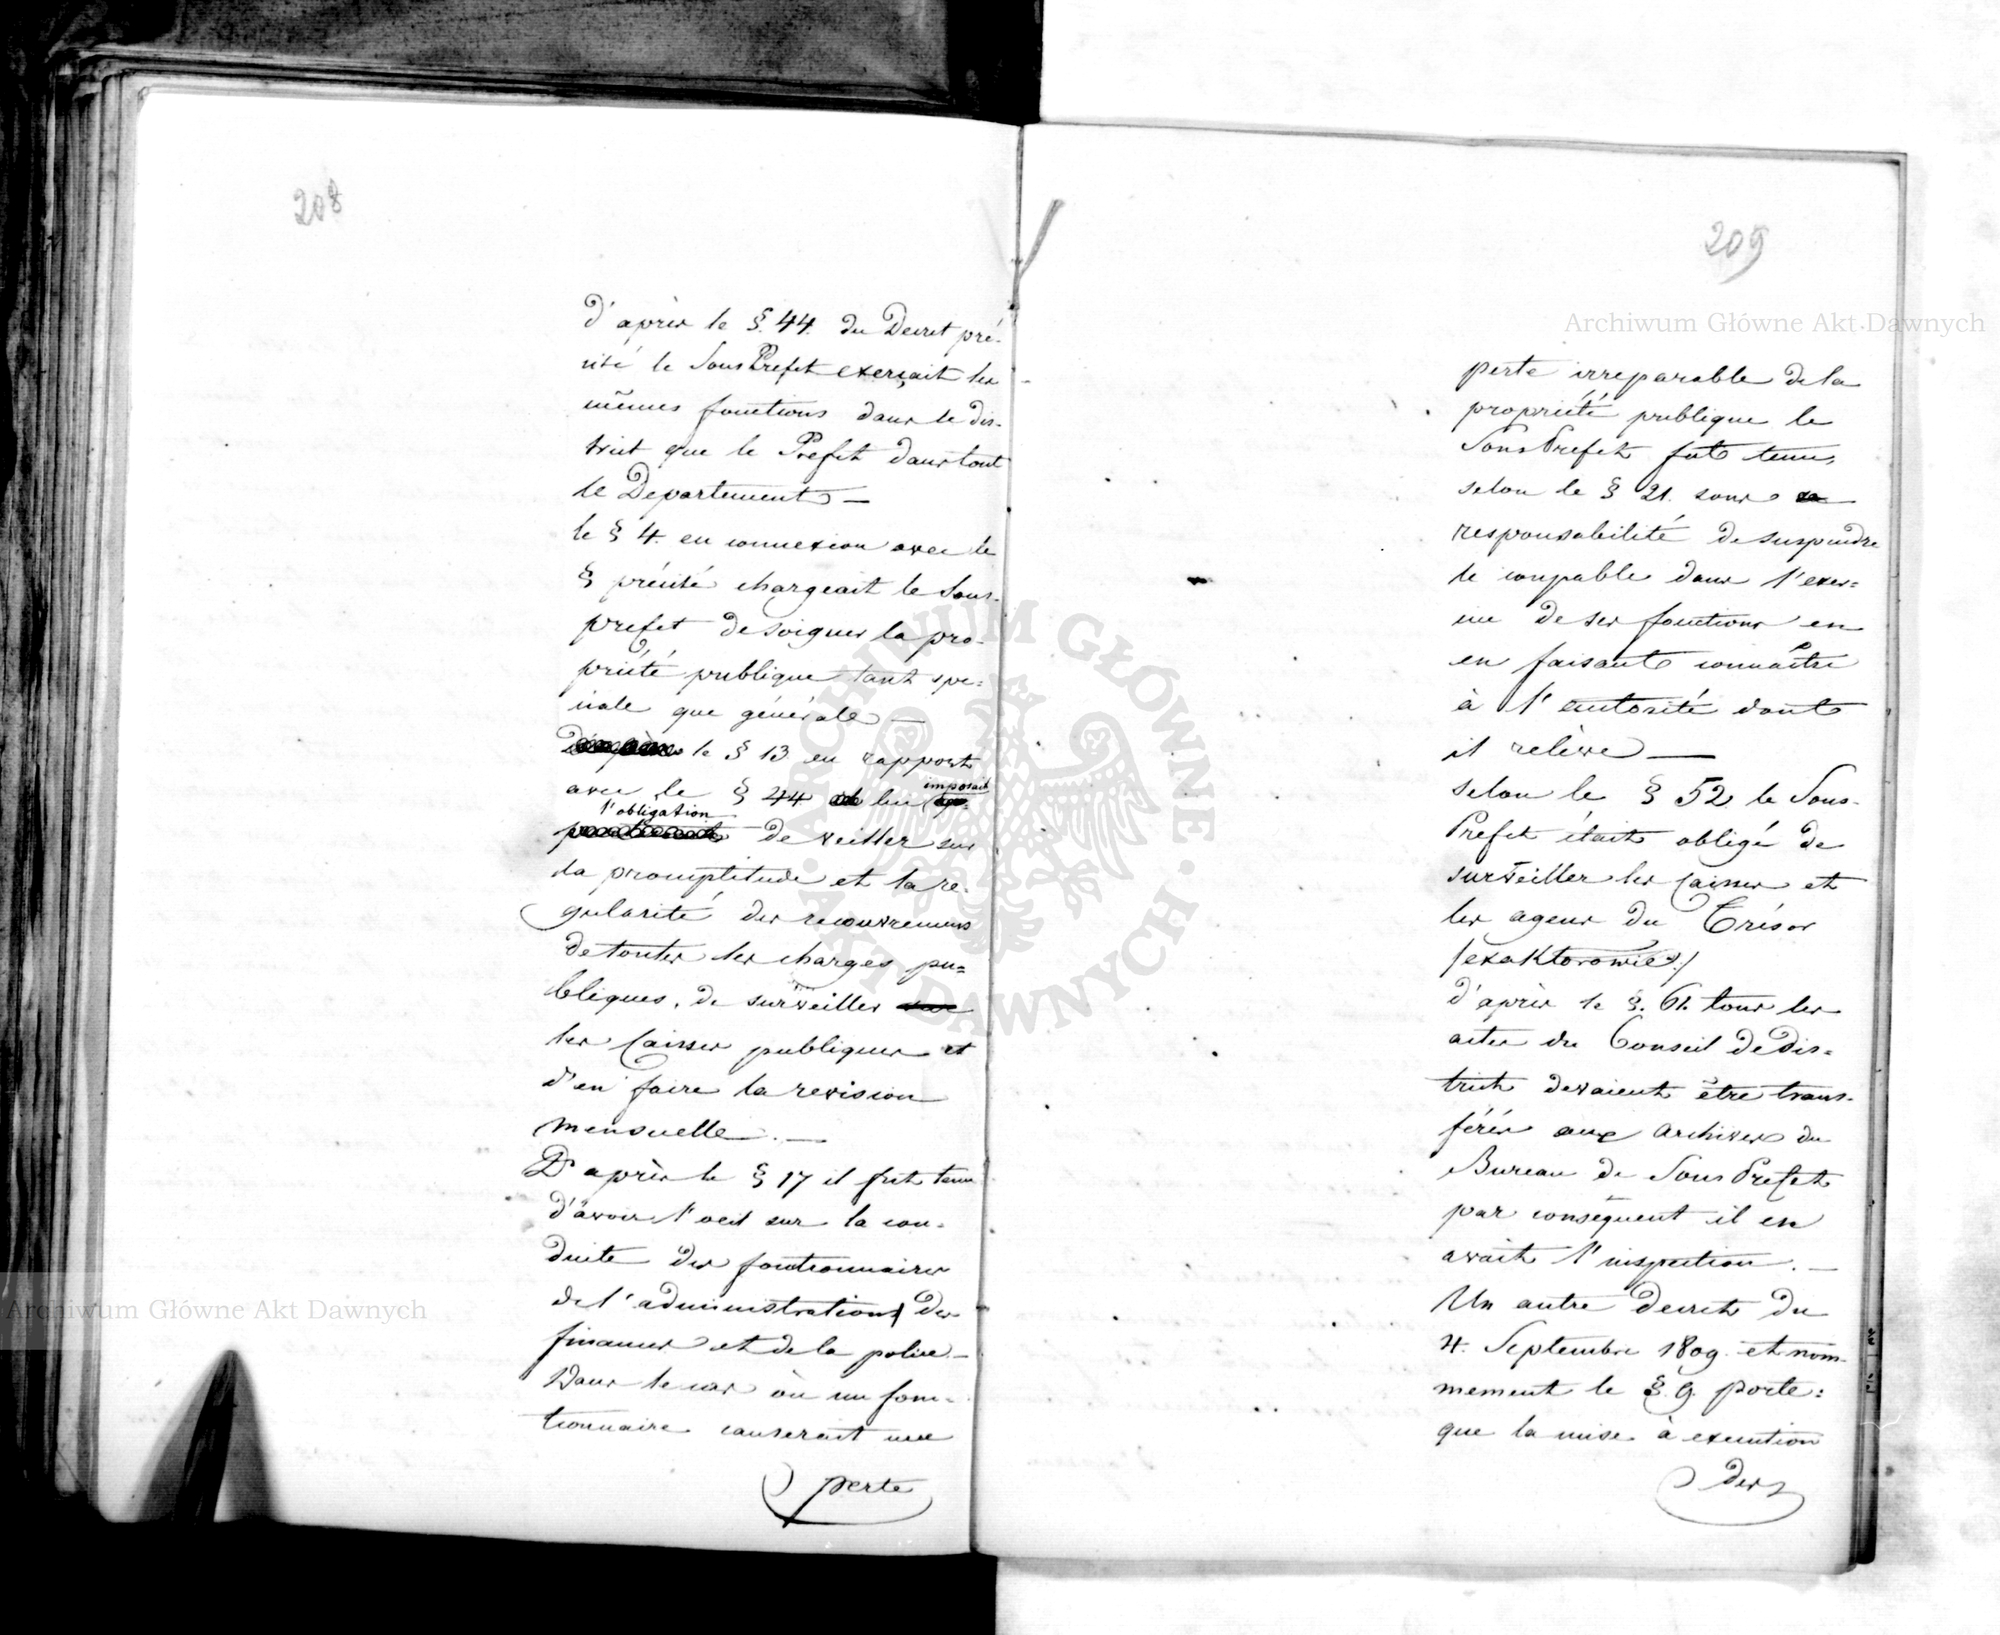 208
d'après le §. 44. du Decret pré-
cité le SousPrefet exerçait les
mêmes fonctions dans le dis-
trict que le Préfet dans tout
le Departement —
le § 4. en connexion avec le
§ précité chargeait le Sous-
prefet de soigner la pro-
priété publique tant spe-
ciale que générale —
le § 13 en rapport
avec le § 44 lui imposait
l'obligation de veiller sur
la promptitude et la re-
gularité des recouvremens
de toutes les charges pu-
bliques, de surveiller
les Caisses publiques et
d'en faire la revision
mensuelle. —
D'après le § 17 il fut tenu
d'avoir l'oeil sur la con-
duite des fonctionnaires
de l'administration, des
finances et de la police. —
Dans le cas où un fonc-
tionnaire causerait une
perte
209
perte irreparable de la
propriété publique le
SousPrefet fut tenu,
selon le § 21. sous sa
responsabilité de suspendre
le coupable dans l'exer-
cice de ses fonctions en
en faisant connaître
à l'autorité dont
il relève —
selon le § 52 le Sous-
Prefet était obligé de
surveiller les Caisses et
les agens du Trésor
/exaktorowie./
d'après le §. 61. tous les
actes du Conseil de Dis-
trict devaient être trans-
férés aux archives du
Bureau de SousPrefet
par conséquent il en
avait l'inspection. —
Un autre Decret du
4. Septembre 1809. et nom-
mement le §. 9. porte:
que la mise à execution
des